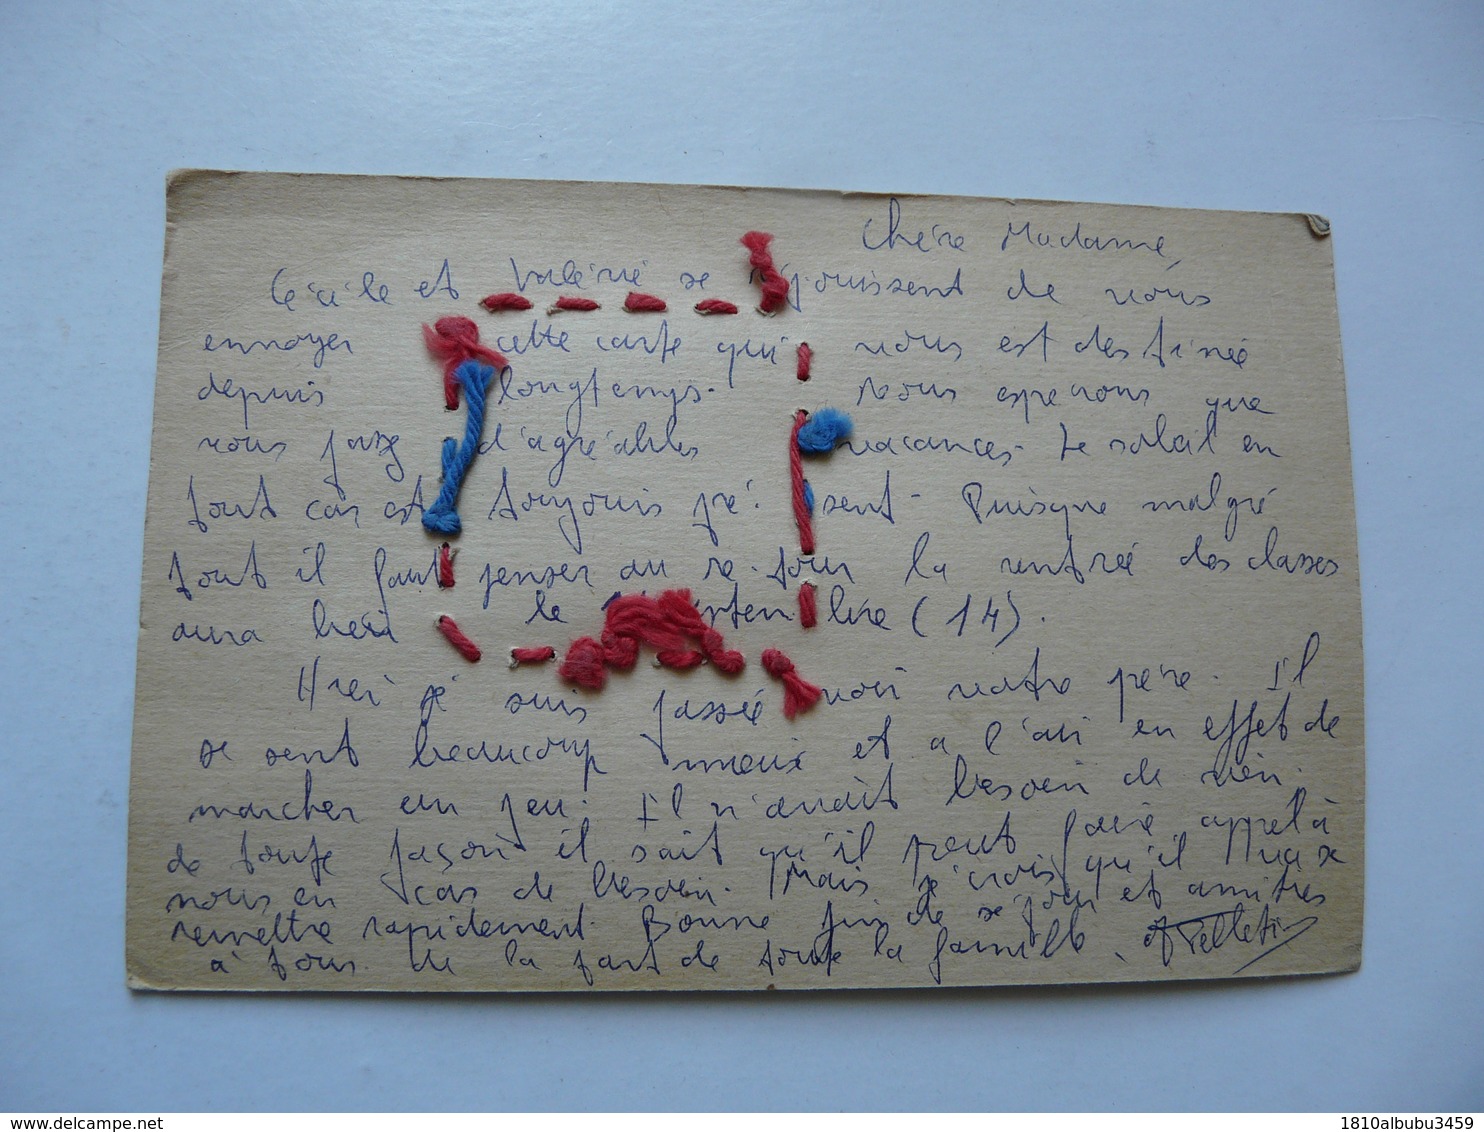 Chère Madame,
Cécile et Valérie se réjouissent de vous
envoyer cette carte qui vous est destinée
depuis longtemps. Nous esperons que
vous passez d'agréables vacances. Le soleil en
tout cas est toujours présent. Puisque malgré
tout il faut penser au retour la rentrée des classes
aura lieu le septembre (14).
Hier je suis passée voir votre père. Il
se sent beaucoup mieux et a l'air en effet de
marcher un peu. Il n'avait besoin de rien.
de toute façon il sait qu'il peut faire appel à
nous en cas de besoin. Mais je crois qu'il va se
remettre rapidement. Bonne fin de séjour et amitiés
à tous. de la part de toute la famille.
www.delcampe.net
1810albubu3459